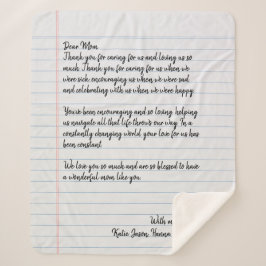 Dear Mom,
Thank you for caring for us and loving us so
much. Thank you for caring for us when we
were sick, encouraging us when we were sad,
and celebrating with us when we were happy.
You've been encouraging and so loving helping
us navigate all that life throws our way. In a
constantly changing world your love for us has
been constant.
We love you so much and are so blessed to have
a wonderful mom like you.
With
Katie Jason, Hanna